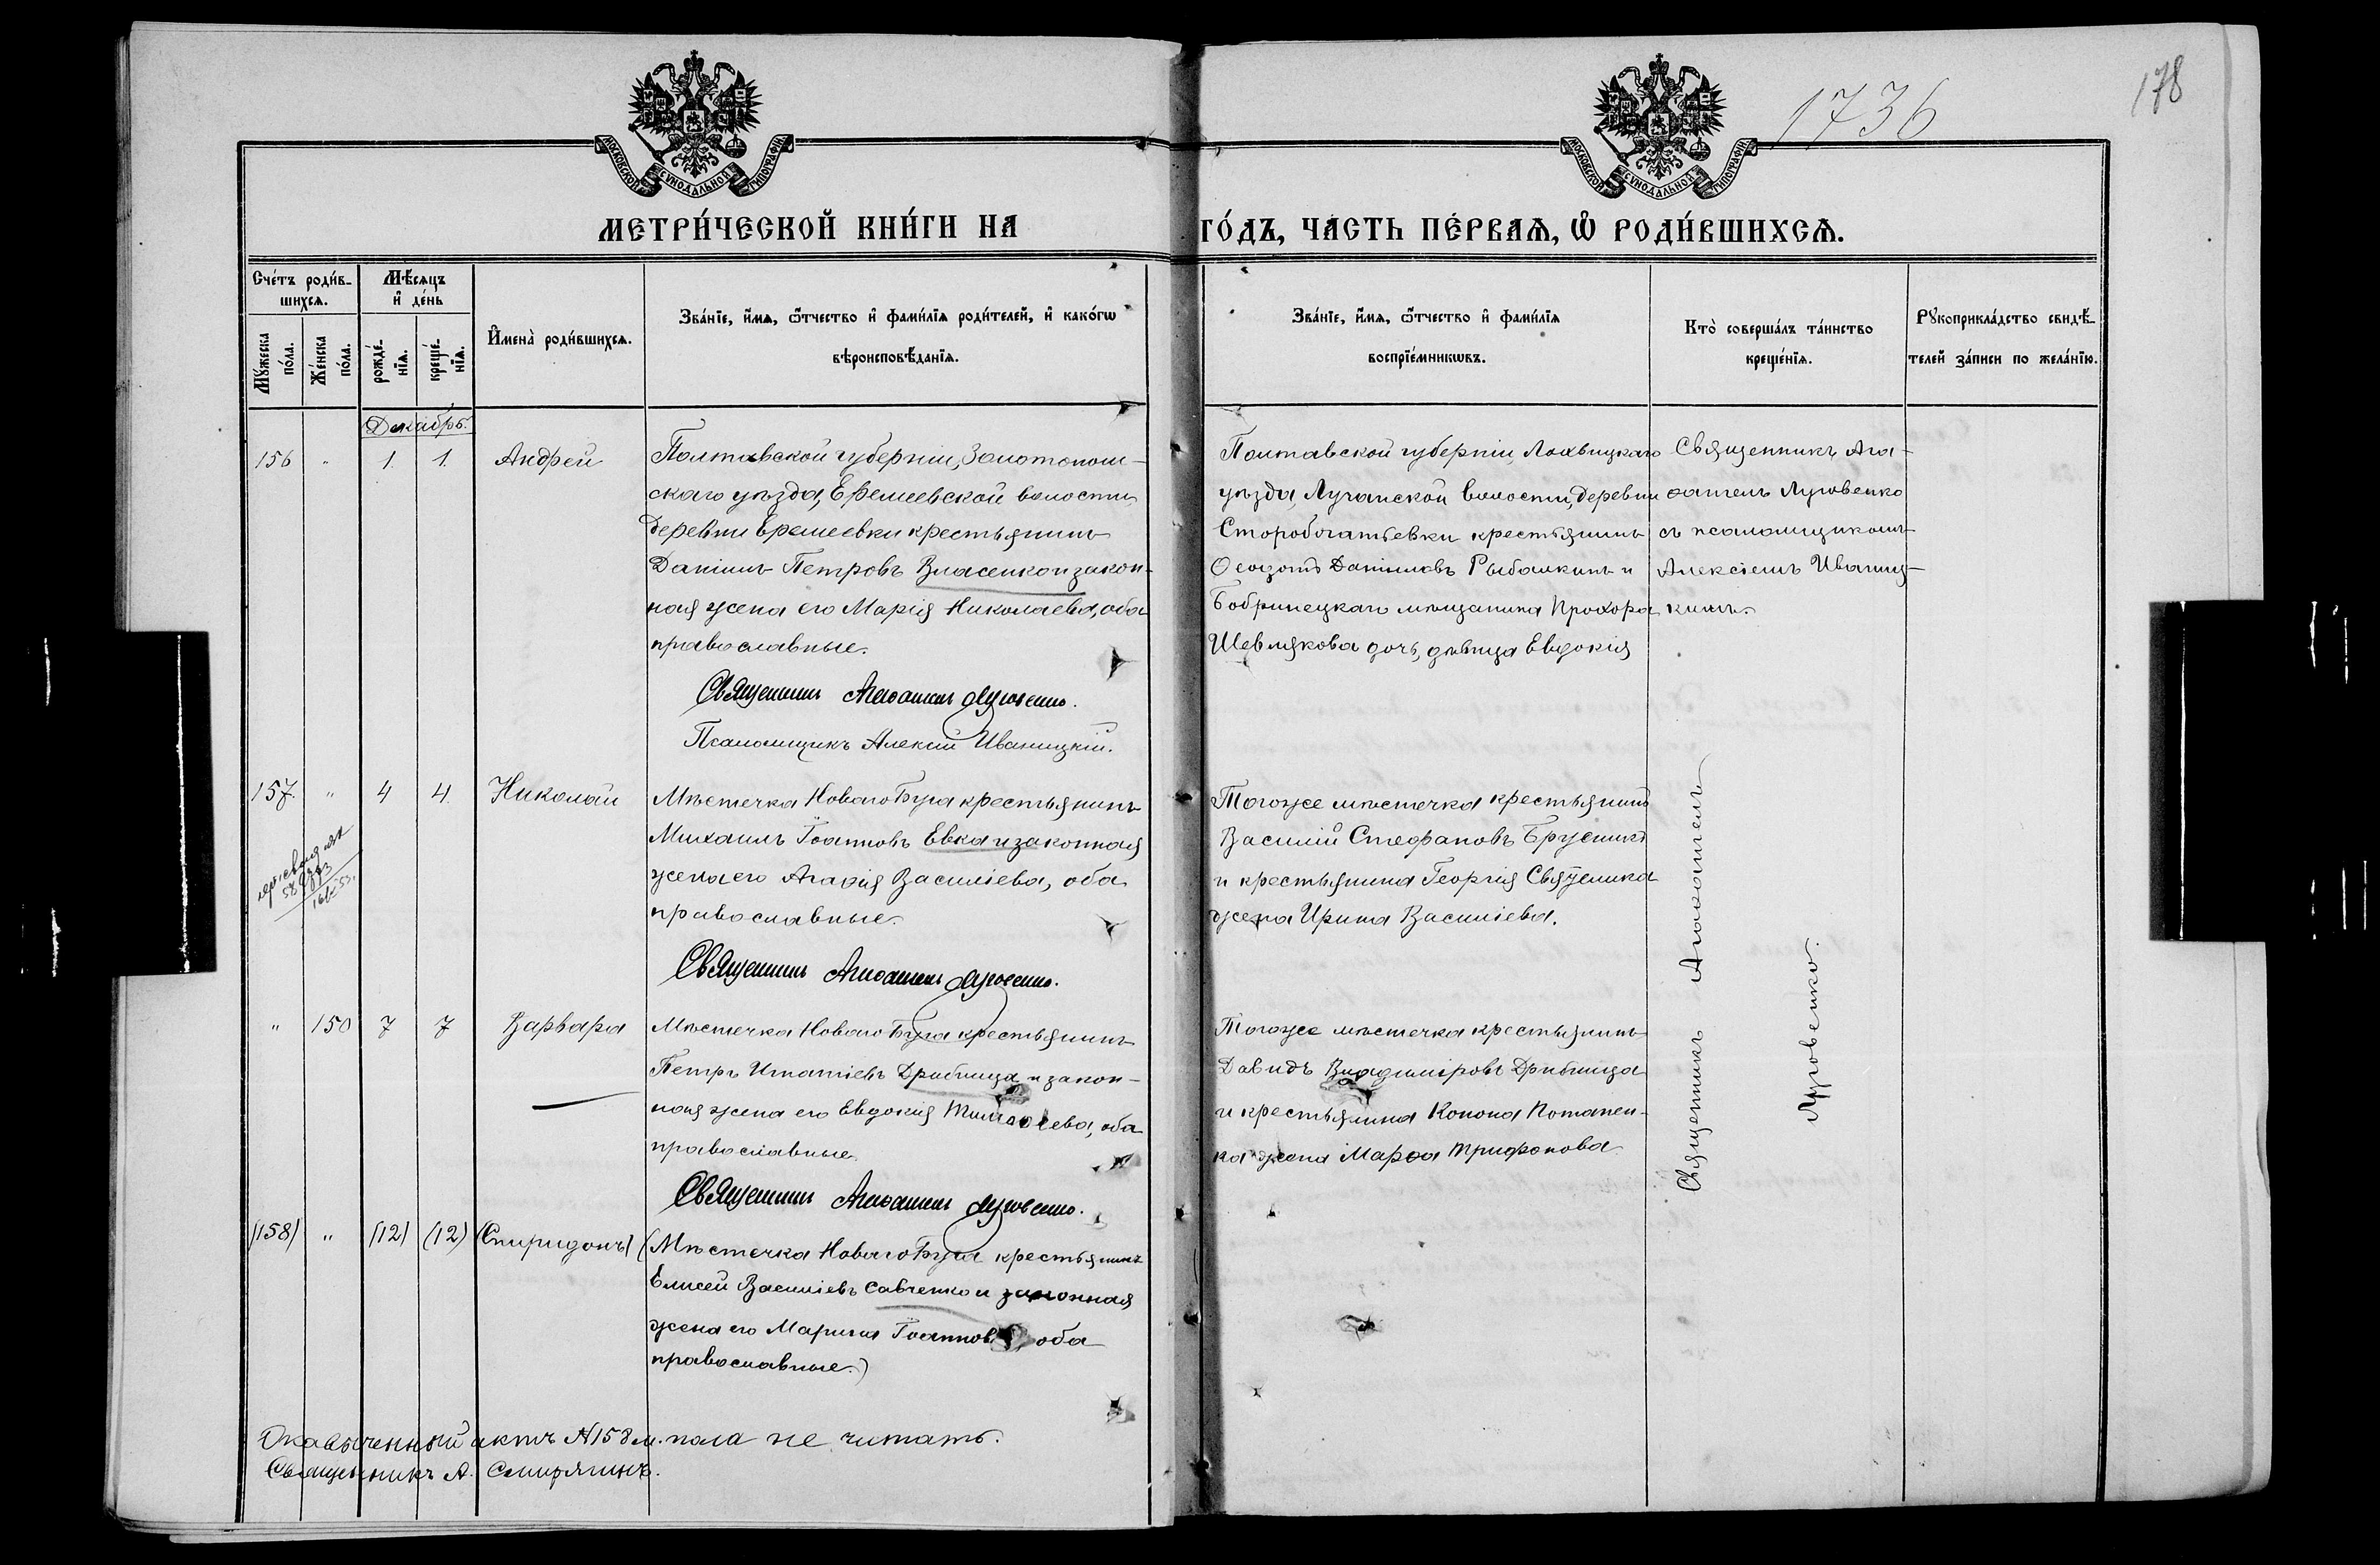 1736
178
МОСКОВСКОЙ СѴНОДАЛЬНОЙ ТИПОГРАФІИ
МОСКОВСКОЙ СѴНОДАЛЬНОЙ ТИПОГРАФІИ
МЕТРИ́ЧЕСКОЙ КНИ́ГИ НА ГО́ДЪ, ЧА́СТЬ ПЕ́РВАѦ, Ѽ РОДИ́ВШИХСѦ.
Сче́тъ роди́в-
шихсѧ.
Мꙋ́жеска по́ла.
Же́нска по́ла.
Мѣ́сѧцъ
и҆ де́нь
рожде́-нїѧ.
креще́-нїѧ.
И҆мена̀ роди́вшихсѧ.
Зва́нїе, и҆́мѧ, ѻ҆́тчество и҆ фами́лїѧ роди́телей, и҆ како́гѡ
вѣроисповѣ́данїѧ.
Зва́нїе, и҆́мѧ, ѻ҆́тчество и҆ фами́лїѧ
воспрїе́мникѡвъ.
Кто̀ соверша́лъ та́инство
креще́нїѧ.
Рꙋкоприкла́дство свидѣ́-
телей за́писи по жела́нїю.
Декабрь.
156 " 1. 1. Андрей
Полтавской губерніи, Золотонош-
скаго уѣзда, Еремеевской волости,
деревни Еремеевки крестьянинъ
Даніилъ Петровъ Власенко и закон-
ная жена его Марія Николаева, оба
православные.
Священникъ Агаѳангелъ Луговенко.
Псаломщикъ Алексій Иваницкій.
Полтавской губерніи, Лохвицкаго
уѣзда, Лучанской волости, деревни
крестьянинъ
Даніиловъ Рыбалкинъ и
Бобринецкаго мѣщанина Прохора
Шевлякова дочь, дѣвица Евдокія
Священникъ Ага-
ѳангелъ Луговенко
съ псаломщикомъ
Алексіемъ Иваниц-
кимъ.
157. " 4 4. Николай
Мѣстечка Новаго Буга крестьянинъ
Михаилъ Іоанновъ Евка и законная
жена его Агаѳія Василіева, оба
православные.
Священникъ Агаѳангелъ Луговенко.
Тогоже мѣстечка крестьянинъ
Василій Стефановъ
и крестьянина Георгія
жена Ирина Василіева.
Священникъ Агаѳангелъ
Луговенко.
" 150 7 7 Варвара
Мѣстечка Новаго Буга крестьянинъ
Петръ Игнатіевъ Дрибница и закон-
ная жена его Евдокія Тимоѳеева, оба
православные.
Священникъ Агаѳангелъ Луговенко.
Тогоже мѣстечка крестьянинъ
Давидъ Владиміровъ Дрибница
и крестьянина Конона Потапен-
ка жена Марѳа Трифонова
(158) " (12) (12) (Спиридонъ)
(Мѣстечка Новаго Буга крестьянинъ
Елисей Василіевъ Савченко и законная
жена его Марина Іоаннова, оба
православные.)
Окавыченный актъ №158 м. пола не читать.
Священникъ А. Смирягинъ.